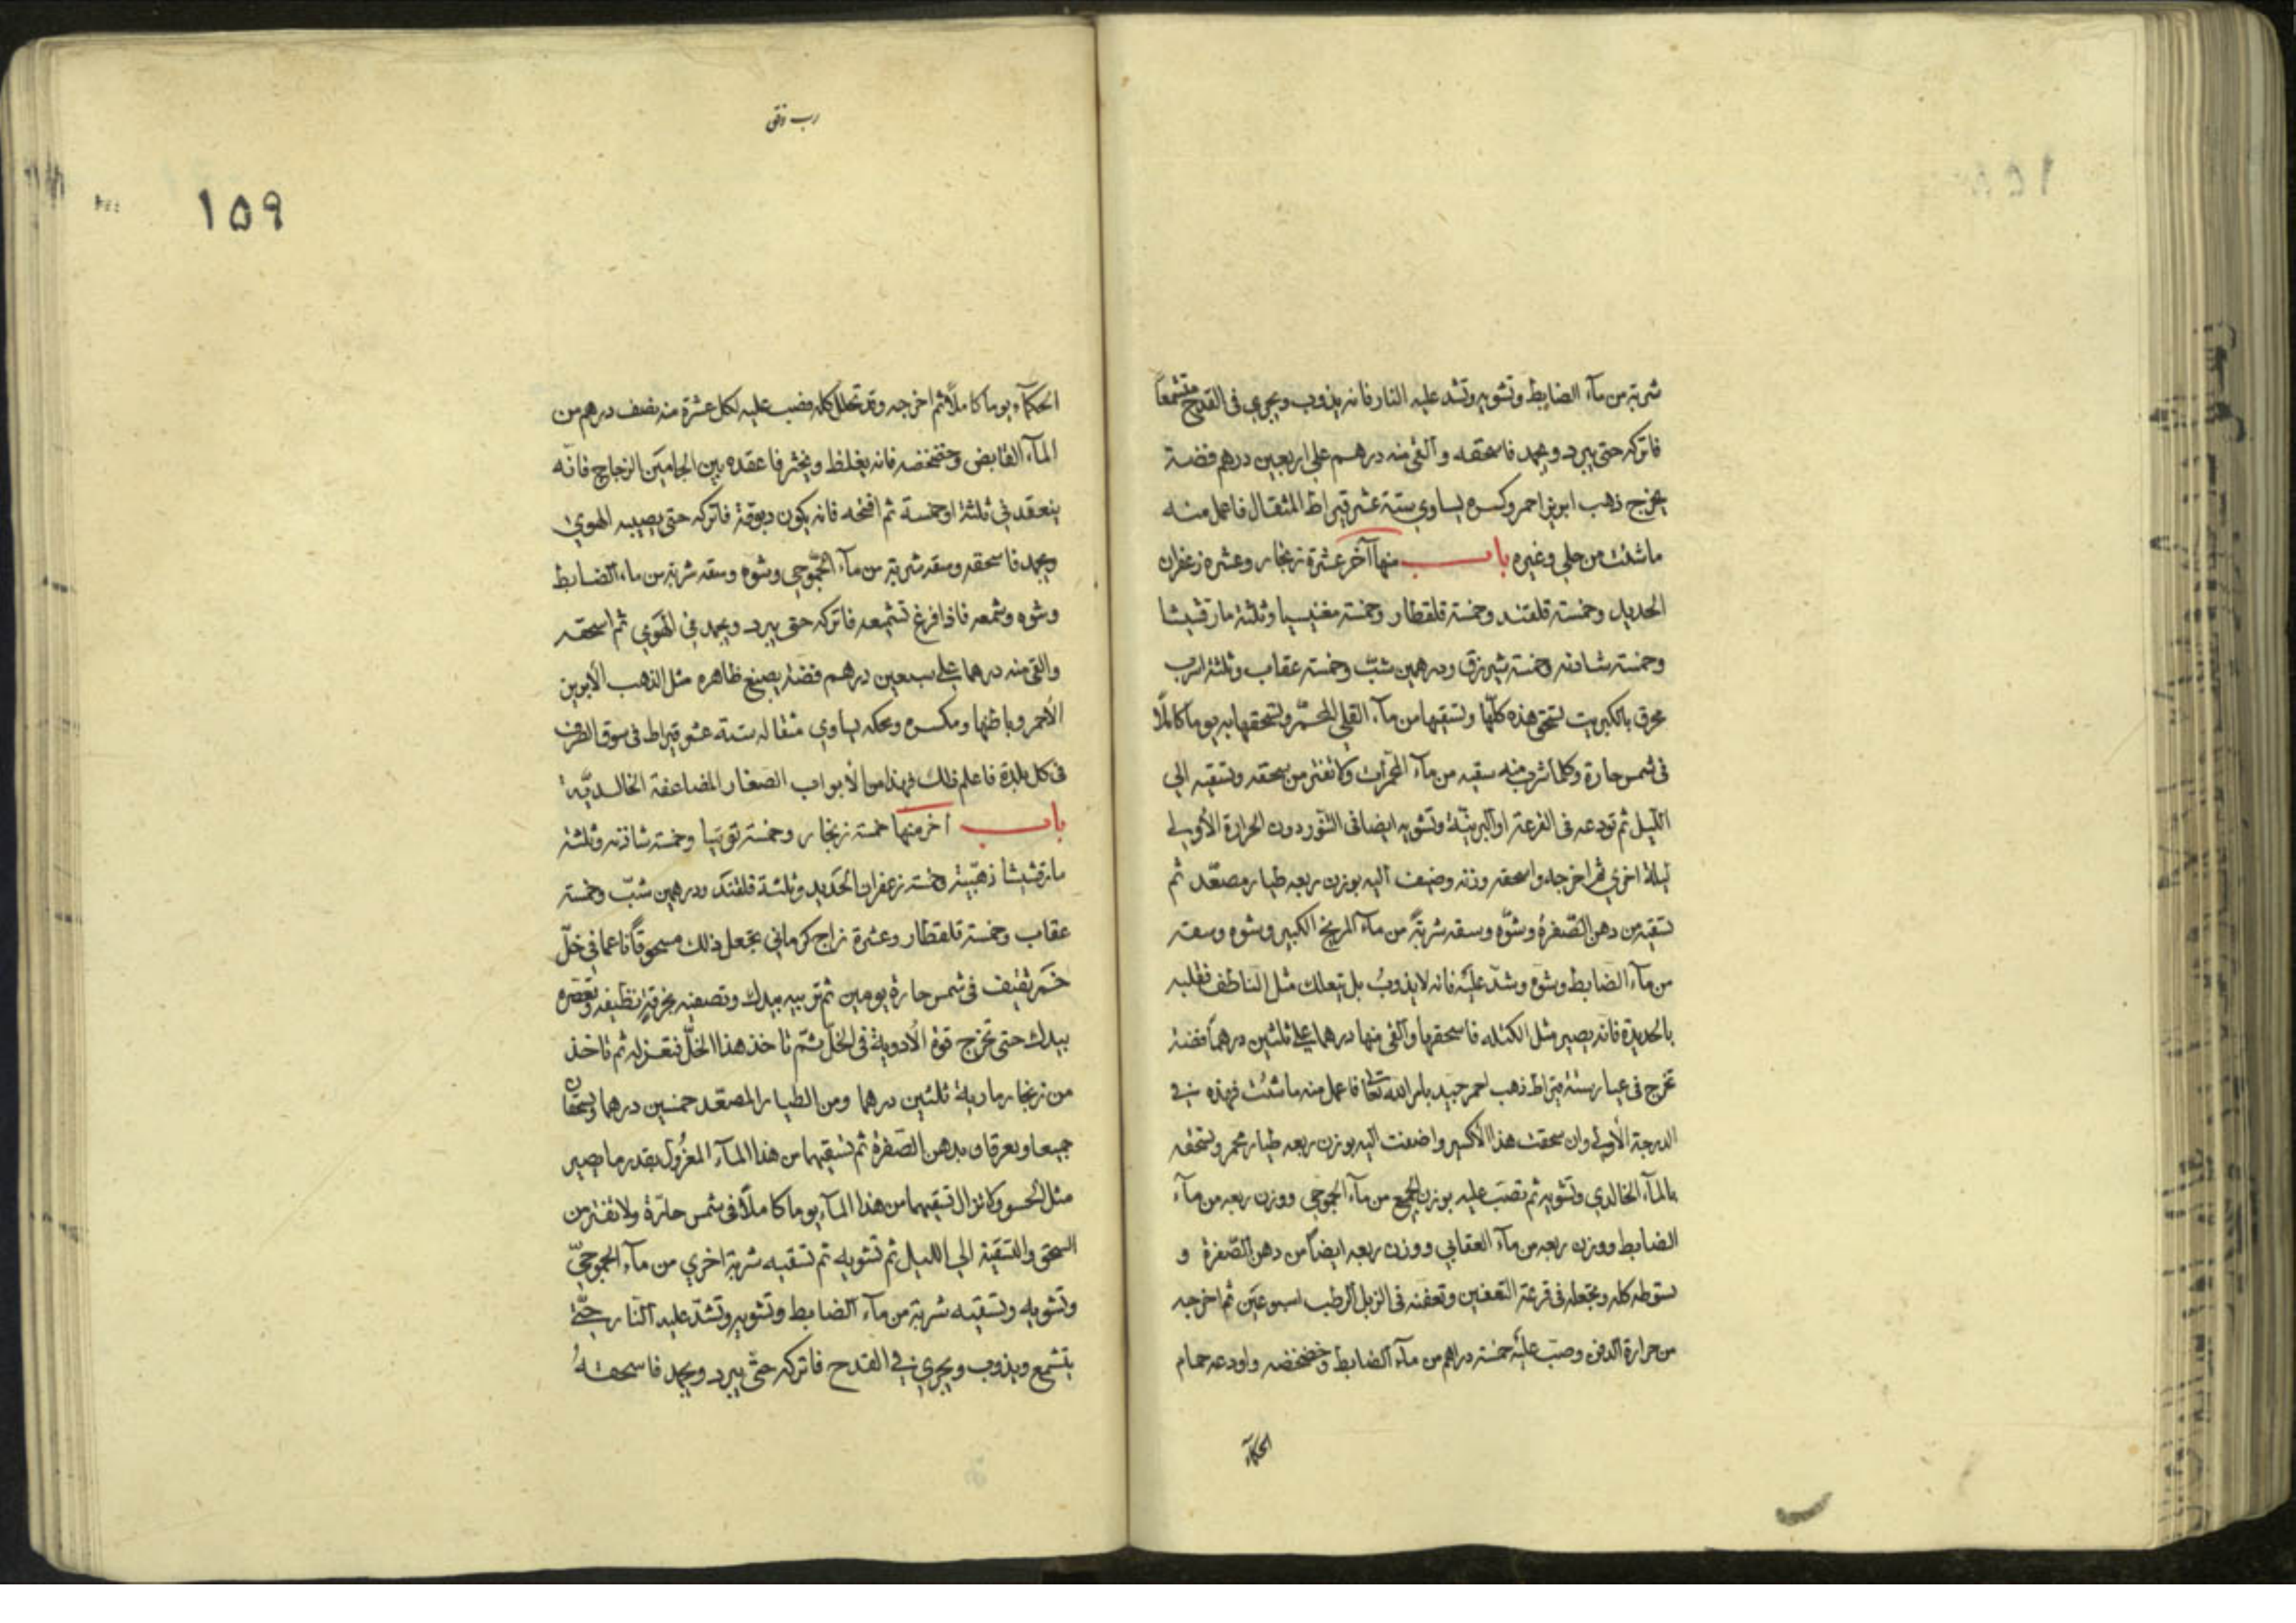 شربة من مآء الضابط وتشويه وتشد عليه النار فانه يذوب ويجري في القدح متشمعاً
فاتركه حتى يبرد ويجمد فاسحقه وألقى منه درهم على اربعين درهم فضة
يخرج ذهب ابريز احمر وكسره يساوي ستة عشر قيراط المثقال فاعمل منه
ما شئت من حلي وغيره باب منها آخر عشرة زنجار وعشره زعفران
الحديد وخمسة قلقند وخمسة قلقطار وخمسة مغنيسيا وثلثة مارقشيشا
وخمسة شادنه وخمسة شيرزق ودرهمين شبّ وخمسة عقاب وثلثة اسرب
محرق بالكبريت تسحق هذه كلّها وتسقيها من مآء القلي المحمّر وتسحقها به يوما كاملاً
في شمس حارة وكلما شرب منه سقيه من مآء المحمرات ولا تفتر من سحقه وتسقيه الي
الليل ثم تودعه في القرعة او البرنيّة وتشويه ايضا في التنّور دون الحرارة الأولي
ليلة اخري ثم اخرجه واسحقه وزنه وضيف اليه بوزن ربعه طيار مصعّد ثم
تسقيه من دهن الصّفرة وشوّه وسقه شربةً من مآء المريخ الكبير وشوه وسقه
من مآء الضابط وشوه وشدّ عليه فانه لا يذوبُ بل يتعلك مثل الناطف فقلبه
بالحديدة فانه يصير مثل الكتله فاسحقها وألقى منها درهما علي ثلثين درهماً فضة
تخرج في عيار ستة قيراط ذهب احمر جيد بامر الله تعالى فاعمل منه ما شئت فهذه في
الدرجة الأولي وان سحقت هذا الأكسير واضفت اليه بوزن ربعه طيار محمر وتسحقه
بالمآء الخالدي وتشويه ثم تصبّ عليه بوزن الجميع من مآء الجموحي ووزن ربعه من مآء
الضابط ووزن ربعه من مآء العقابي ووزن ربعه ايضاً من دهن الصّفرة و
تسوطه كله وتجعله في قرعة التعفين وتعفنه في الزبل الرطب اسبوعين ثم اخرجه
من حرارة الدفن وصبّ عليه خمسة دراهم من مآء الضابط وخضخضه واودعه حمام
الحكمآء
١٥٩
الحكمآء يوما كاملاً ثم اخرجه وقد تحلل كله فصب عليه لكل عشرة منه نصف درهم من
المآء القابض وخضخضه فانه يغلظ ويخثر فاعقده بين الجامين الزجاج فانّه
ينعقد في ثلثة او خمسة ثم افتحه فانه يكون دبوقة فاتركه حتى يصيبه الهوي
ويجمد فاسحقه وسقه شربة من مآء الجّموحي وشوه وسقه شربة من ماء الضابط
وشوه وشمعه فاذا فرغ تشميعه فاتركه حتى يبرد ويجمد في الهَوي ثم اسحقه
والقى منه درهما على سبعين درهم فضة يصبغ ظاهره مثل الذهب الأبريز
الأحمر وباطنها ومكسره ومحكه يساوي مثقاله ستة عشر قيراط في سوق الطرف
في كل بلدة فاعلم ذلك فهذا من الأبواب الصغار المضاعفة الخالديّة
باب آخر منها خمسة زنجار وخمسة توتيا وخمسة شاذنه وثلثة
مارقشيشا ذهبيّة وخمسة زعفران الحديد وثلثة قلقند ودرهمين شبّ وخمسة
عقاب وخمسة قلقطار وعشرة زاج كرماني تجعل ذلك مسحوقاً ناعما في خلّ
خمر ثقيف في شمس حارة يومين ثم تربيه بيدك وتصفيه بخرقة نظيفه وتعصره
بيدك حتى تخرج قوة الأدوية في الخلّ ثمّ تاخذ هذا الخلّ فتعزله ثم تاخذ
من زنجار مارية ثلثين درهما ومن الطيار المصعّد خمسين درهما ويسحقان
جميعا ويعرقان بدهن الصّفرة ثم تسقيهما من هذا المآء المعزُول بقدر ما يصير
مثل الحسو ولا تزال تسقيهما من هذا المآء يوما كاملاً في شمس حارّة ولا تفتر من
السحق والتسقية الي الليل ثم تشويه ثم تسقيه شربة اخري من مآء الجموحيّ
وتشويه وتسقيه شربة من مآء الضابط وتشويه وتشدّ عليه النّار حتّي
يتشمع ويذوب ويجري في القدح فاتركه حتّي يبرد ويجمد فاسحقهُ